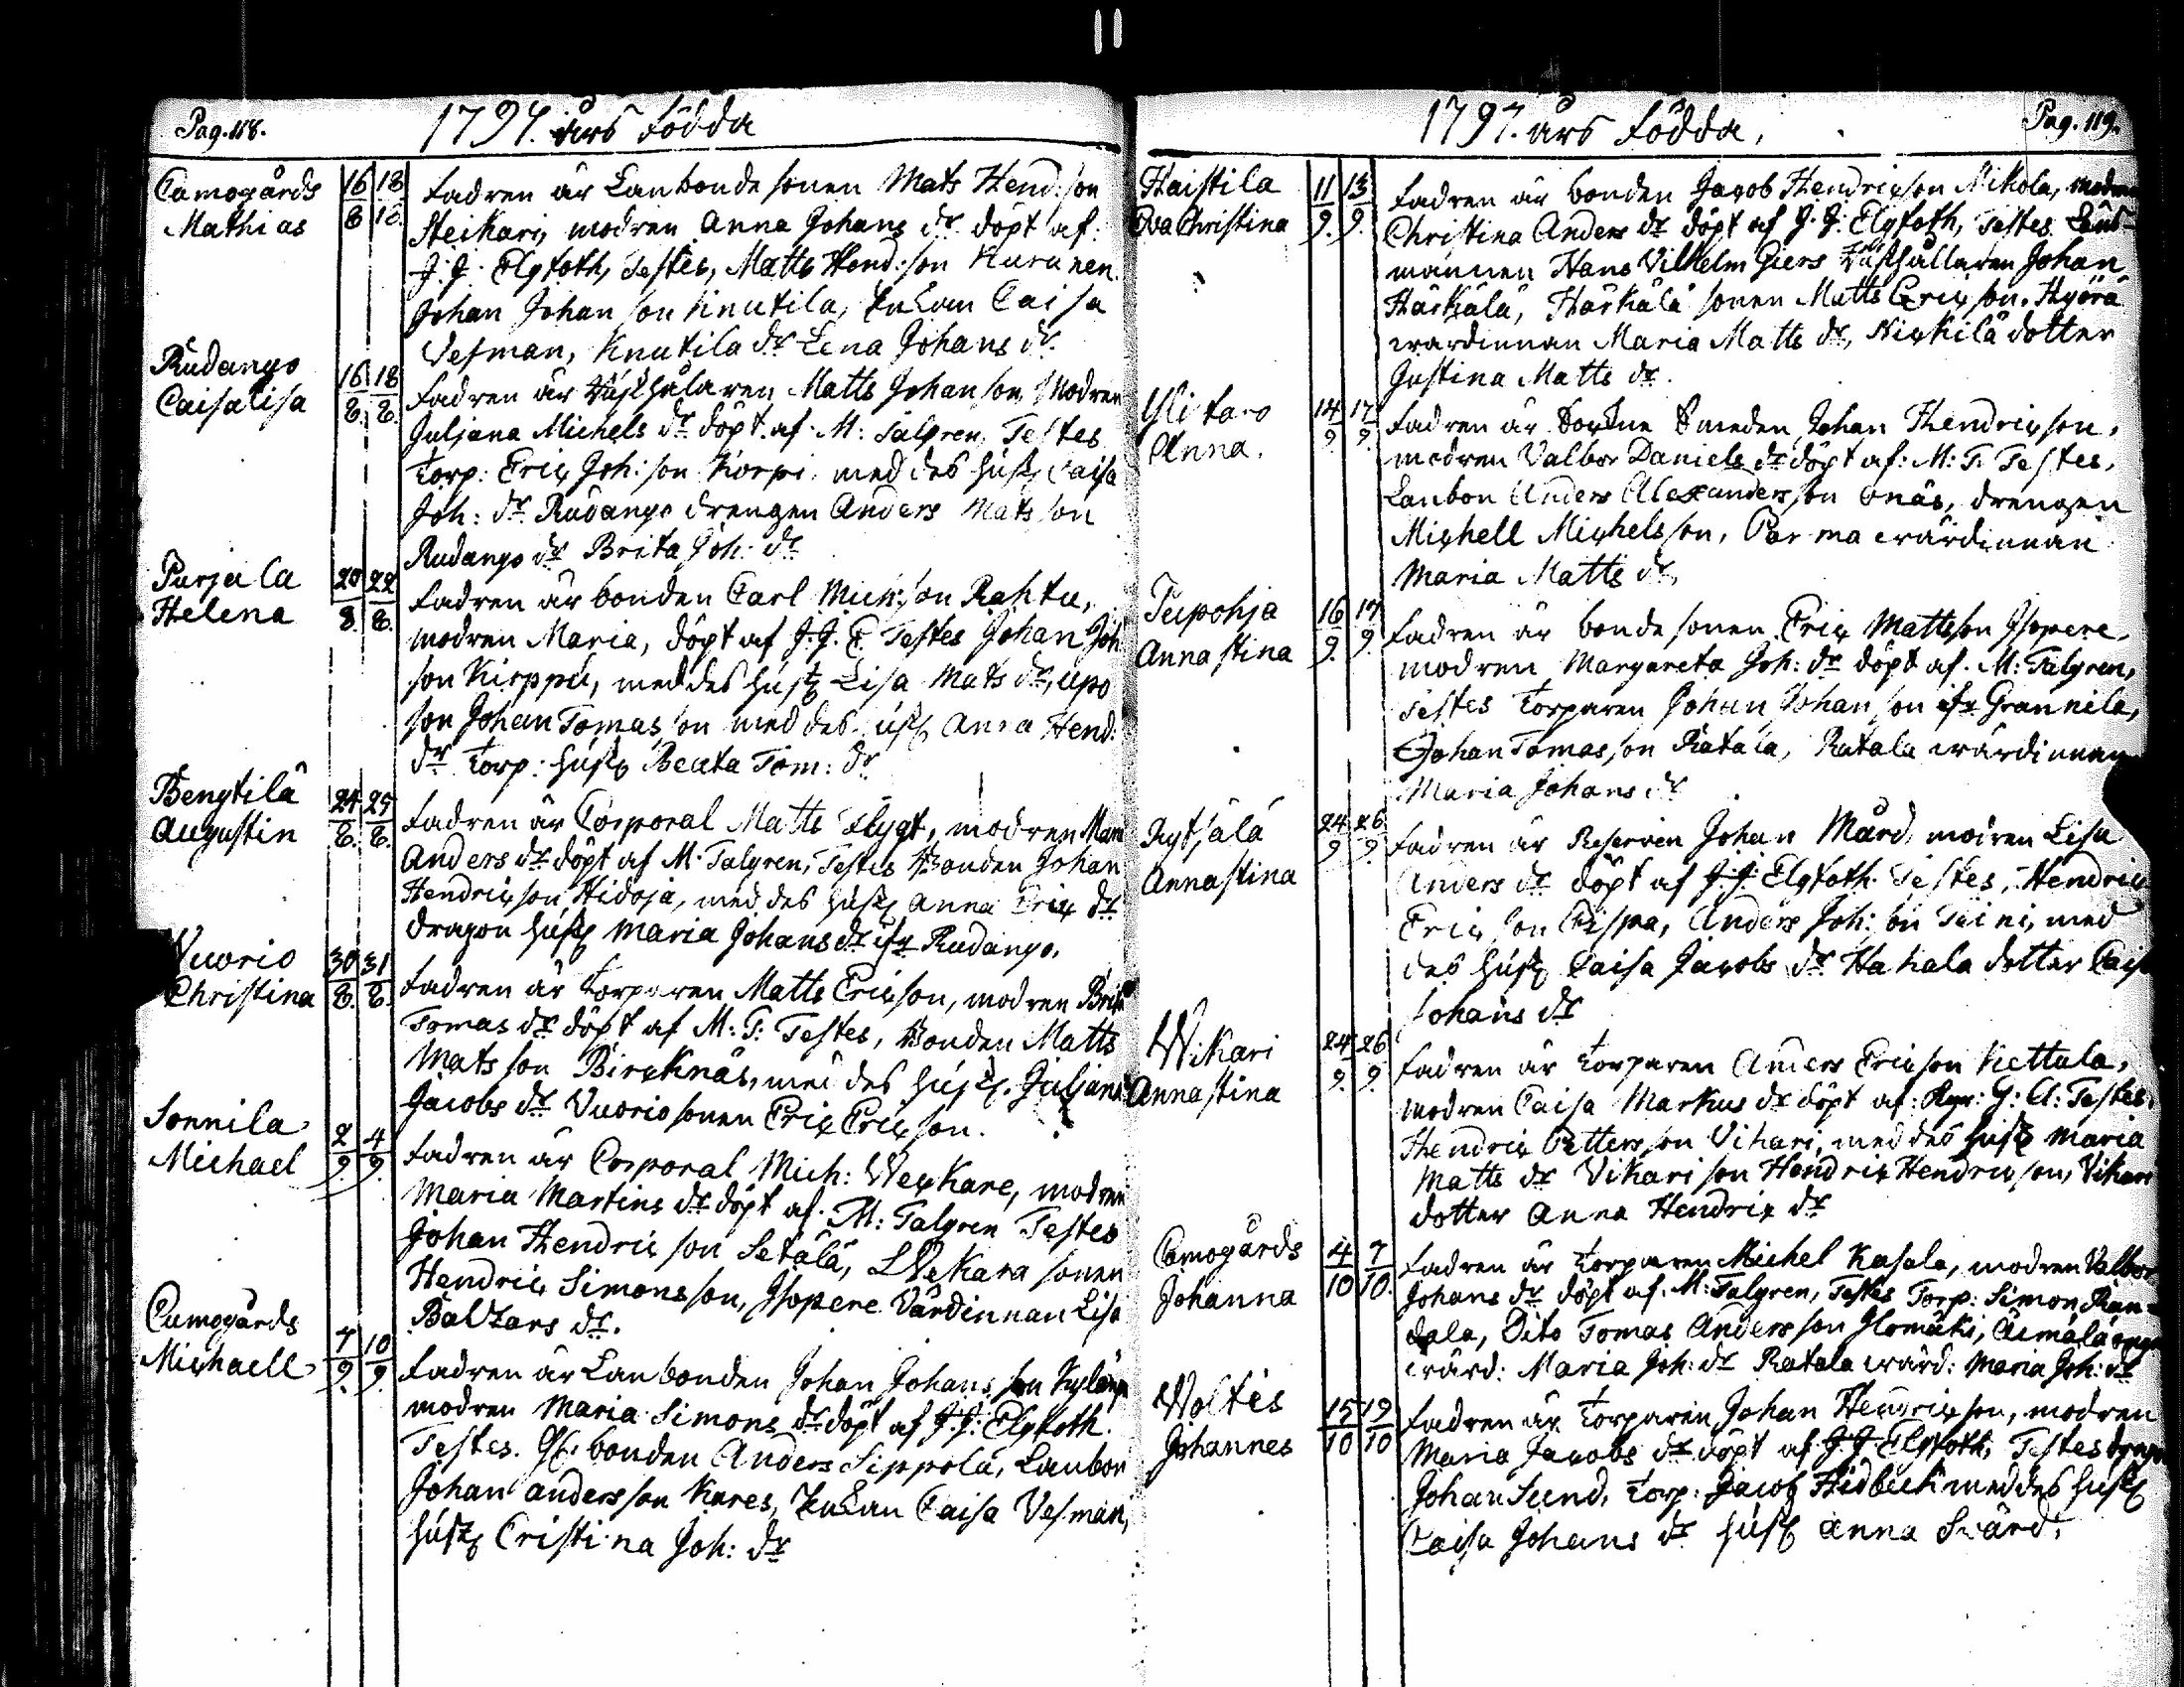 Pag. 118.
1797. års födda
Camogårds
Mathias
16/8 18/8
Fadren är Lanbondesonen Mats Hend:son
Heikari, modren Anna Johans dr döpt af:
J. J. Elgfoth, Testes, Matts Hend:son Kurunen.
Johan Johanson Knutila, Enkan Caisa
Vesman, Knutila dr Lena Johans dr.
Rudango
Caisalisa
16/8. 18/8.
Fadren är Rusthålaren Matts Johanson, Modren
Juljana Michels dr döpt af M: Talgren, Testes
Torp: Eric Joh:son Korpi, med des hust Caisa
Joh: dr Rudango drengen Anders Matsson
Rudango dr Brita Joh: dr
Purjala
Helena
20/8. 22/8.
Fadren är bonden Carl Mich:son Rahtu,
modren Maria, döpt af J. J. E. Testes Johan Joh
son Kirppu, med des hust Lisa Mats dr, upo
son Johan Tomasson med des hust Anna Hend:
dr Torp: hust Beata Tom: dr
Bengtilä
Augustin
24/8. 25/8.
Fadren är Corporal Matts Flygt, modren Mari
Anders dr döpt af M. Talgren, Testes Bonden Johan
Hendricson Hidoja, med des hust Anna Eric dr
dragon hust Maria Johans dr ifr Rudango.
Vuorio
Christina
30/8. 31/8.
Fadren är Torparen Matts Ericson, modren Brita
Tomas dr döpt af M: T: Testes, Bonden Matts
Matsson Bircknäs, med des hust Juljana
Jacobs dr Vuorio sonen Eric Ericson.
Sonnila
Michael
2/9. 4/9.
Fadren är Corporal Mich: Weckare, modren
Maria Martins dr döpt af M: Talgren Testes
Johan Hendricson Setälä, Wekara sonen
Hendric Simonsson, Isopere Värdinnan Lisa
Baltzars dr.
Camogårds
Michaell
7/9. 10/9.
Fadren är Lanbonden Johan Johansson
modren Maria Simons dr döpt af J. J: Elgfoth.
Testes. bonden Anders Sippola, Lanbon
Johan andersson Kares, Enkan Caisa Vesman,
hust Cristina Joh: dr
1797. års födda,
Pag. 119.
Haistila
Eva Christina
11/9. 13/9.
Fadren är bonden Jacob Hendricson Mikola, modren
Christina Anders dr döpt af J. J: Elgfoth, Testes. Läns-
mannen Hans Vilhelm Giers Rusthållaren Johan
Härkälä, Härkälä sonen Matts Ericson. Hyörä
wärdinnan Maria Matts dr, Nickilä dotter
Justina Matts dr.
Ylitaro
Anna.
14/9 17/9.
Fadren är Sockne Smeden Johan Hendricson,
modren Valbor Daniels dr döpt af: M: T. Testes,
Lanbon Anders Alexandersson Onäs, drengen
Michell Michelsson, Parma wärdinnan
Maria Matts dr,
Peipohja
Annastina
16/9. 17/9.
Fadren är bondesonen Eric Mattsson Isopere,
modren Margareta Joh: dr döpt af. M: Talgren,
Testes Torparen Johan Johanson ifr Grannila,
Johan Tomasson Ratala, Ratala wärdinnan
Maria Johans dr
Rytsälä
Annastina
24/9 26/9
Fadren är Reserven Johan Mård, modren Lisa
Anders dr döpt af J. J: Elgfoth. Testes, Hendric
Ericson Cispa, Anders Joh:son Teini, med
des hust Caisa Jacobs dr Hahala dotter Caisa
Johans dr
Wikari
Annastina
24/9. 26/9.
Fadren är Torparen Anders Ericson Kettala,
modren Caisa Markus dr döpt af: G: A: Testes,
Hendric Pettersson Vihari, med des hust Maria
Matts dr Vikari son Hendric Hendricson, Vikari
dotter Anna Hendric dr
Camogårds
Johanna
4/10 7/10.
Fadren är Torparen Michel Kasala, modren Valbor
Johans dr döpt af. M: Talgren, Testes Torp: Simon Ran-
dala, Dito Tomas Andersson Ilomäki,
wärd: Maria Joh: dr Ratala wärd: Maria Joh: dr
Woltis
Johannes
15/10 19/10
Fadren är Torparen Johan Hendricson, modren
Maria Jacobs dr döpt af J. J Elgfoth, Testes drag
Johan Sund, Torp: Jacob Hidbeck med des hust
Caisa Johans dr hust Anna Svärd.